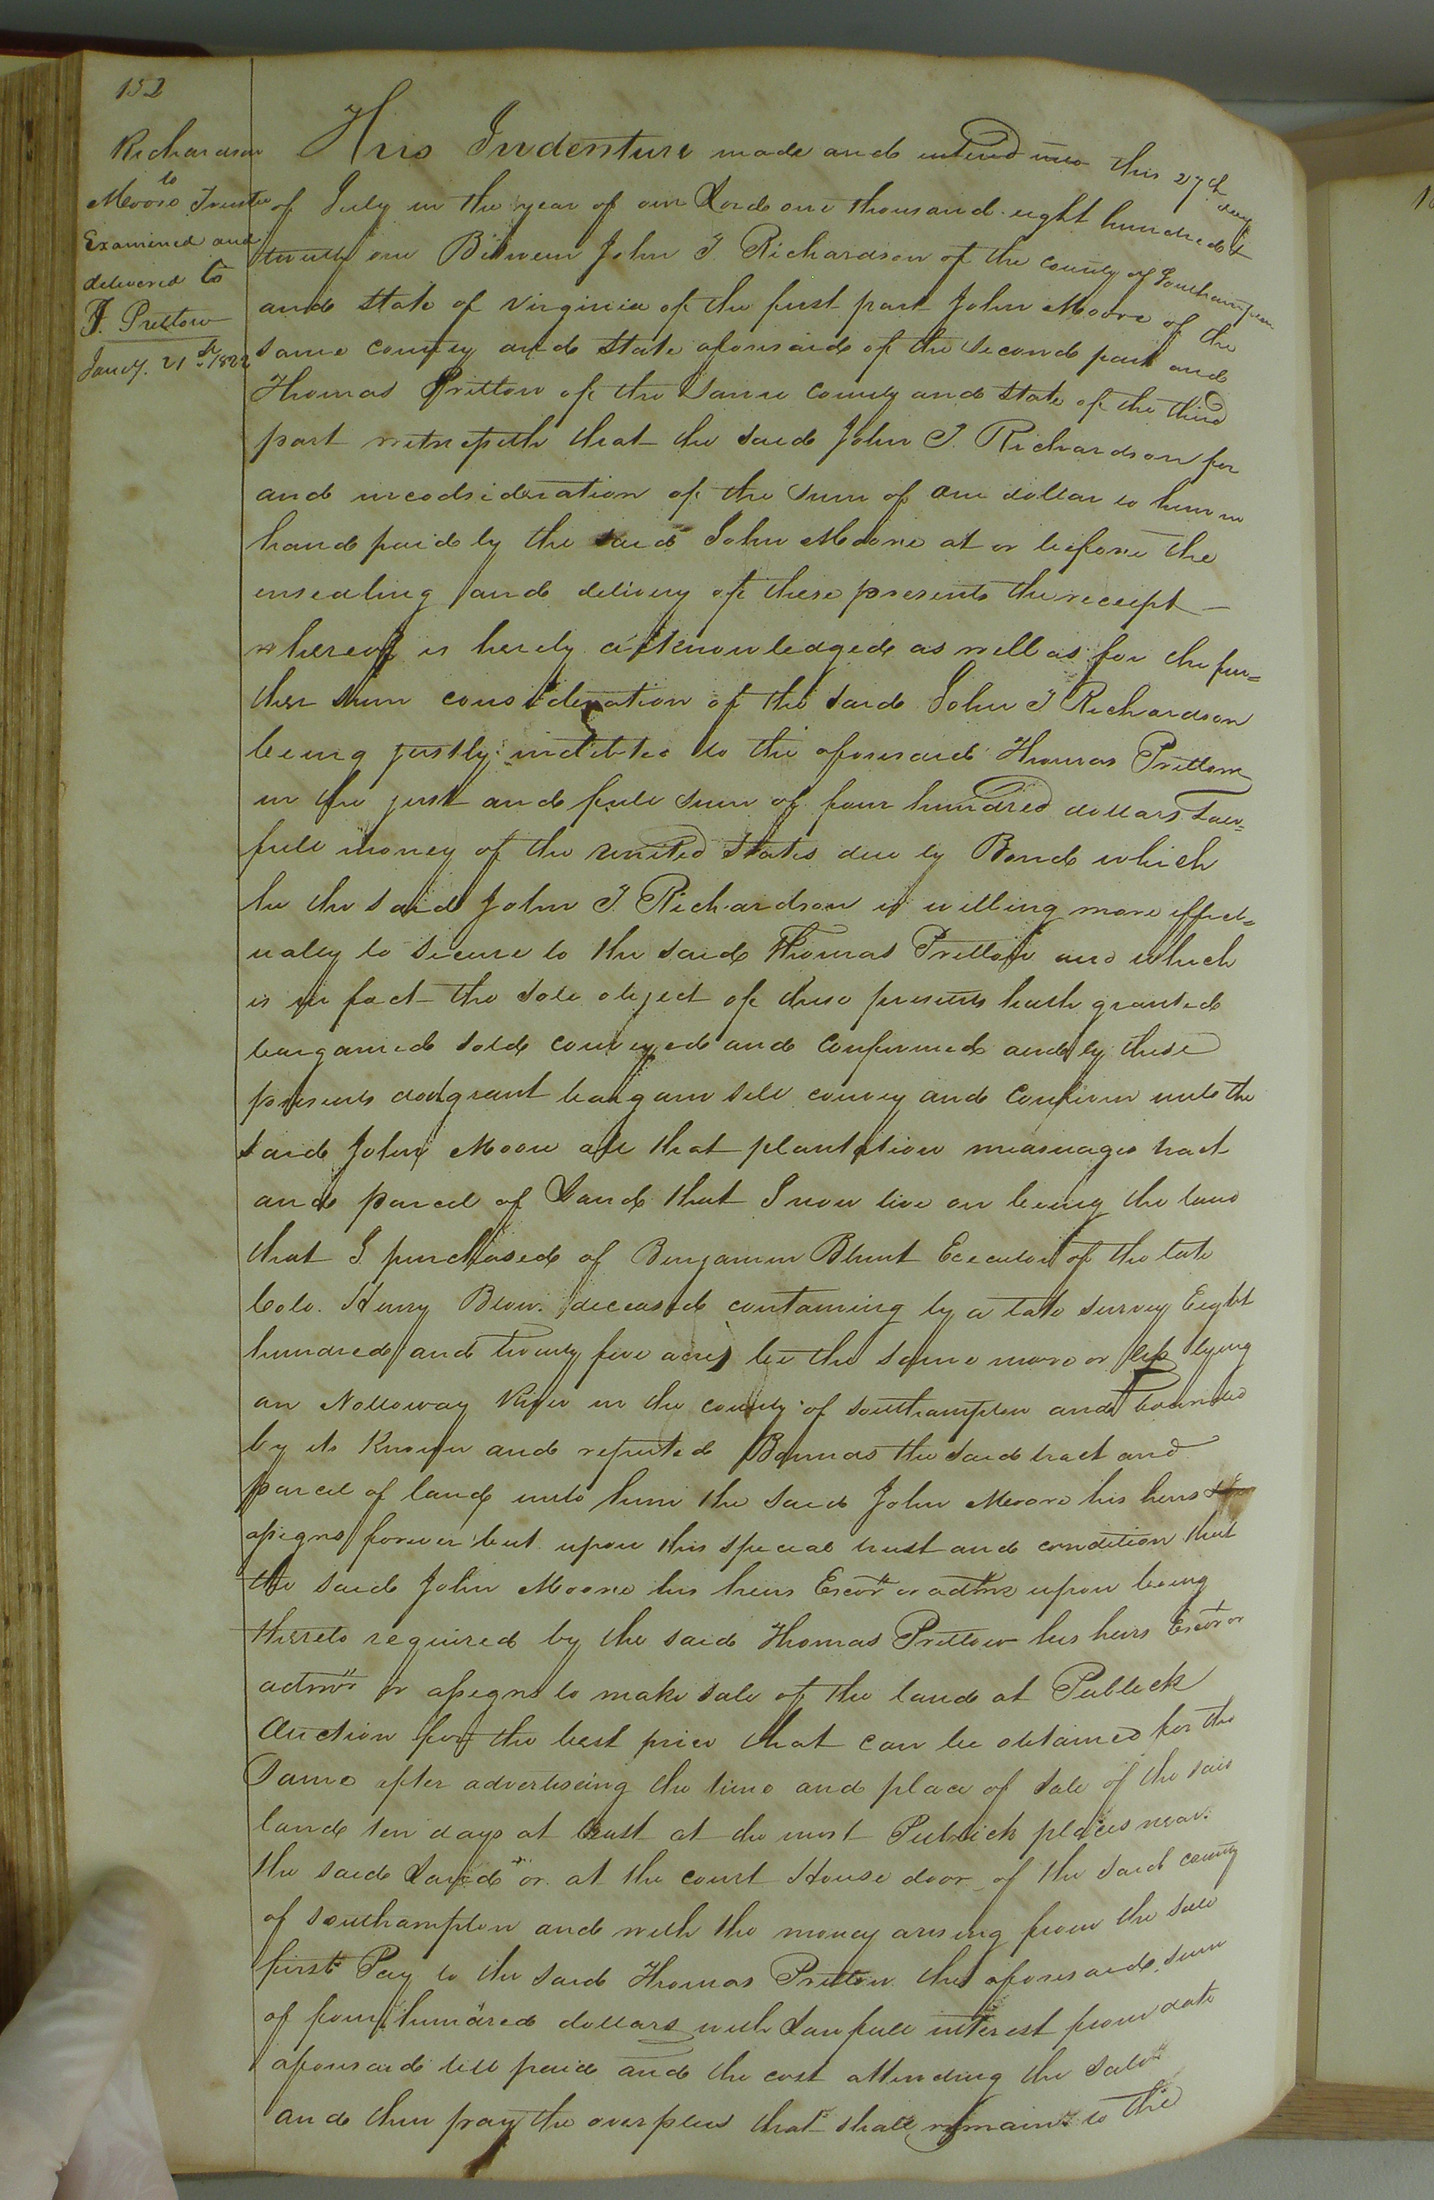 152
Richardson
to
Moore Trustee
Examined and
delivered to
T. Pretlow
Jany. 21st 1822
This Indenture made and entered into this 27th day
of July in the year of our Lord one thousand eight hundred &
twenty one Between John T. Richardson of the county of Southampton
and State of Virginia of the first part John Moore of the
same county and State aforesaid of the second part and
Thomas Pretlow of the same County and State of the third
part witnesseth that the said John T. Richardson for
and inconsideration of the sum of one dollar to him in
hand paid by the said John Moore at or before the
ensealing and delivery of these presents the receipt
whereof is hereby acknowledged as well as for the fur=
ther sum consideration of the said John T Richardson
being justly indebted to the aforesaid Thomas Pretlow
in the just and full sum of four hundred dollars Law=
full money of the united States due by Bond which
he the said John T. Richardson is willing more effect=
ually to secure to the said Thomas Pretlow and which
is in fact the sole object of these presents hath granted
bargained sold conveyed and confirmed and by these
presents doth grant bargain sell convey and confirm unto the
said John Moore all that plantation measuages tract
and parcel of Land that I now live on being the land
that I purchased of Benjamin Blunt Executor of the late
Colo. Henry Blow. deceased containing by a late survey Eight
hundred and twenty five acres be the same more or less lying
on Nottoway River in the county of Southampton and bounded
by its Known and reputed Bounds the said tract and
parcel of land unto him the said John Moore his heirs &
assigns forever but upon this special trust and condition that
the said John Moore his heirs Excrs or admrs upon being
thereto required by the said Thomas Pretlow his heirs Excrs or
admrs or assigns to make sale of the land at Publick
Auction for the best price that can be obtained for the
Same after advertiseing the time and place of Sale of the said
land ten days at least at the most Publick places near
the said Land or at the court House door of the said county
of Southampton and with the money arising from the sale
first Pay to the said Thomas Pretlow the aforesaid sum
of four hundred dollars with Lawfull interest from date
aforesaid till paid and the cost attending the Sale
and then pay the overplus that shall remain to the